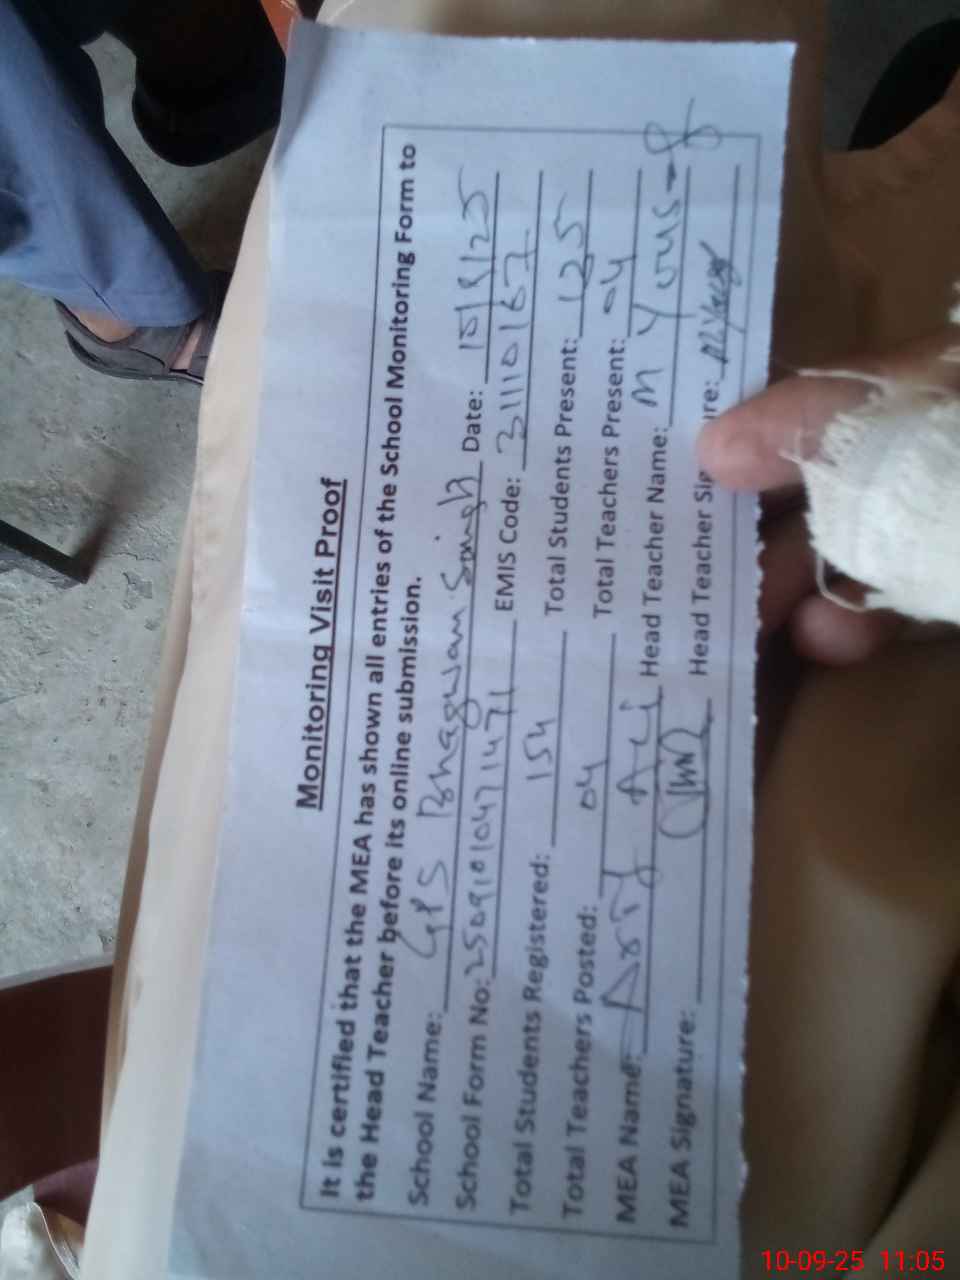 Monitoring Visit Proof
It is certified that the MEA has shown all entries of the School Monitoring Form to
the Head Teacher before its online submission.
School Name: GPS Bhagwan Singh Date: 10/9/25
School Form No: 25091010471471 EMIS Code: 31110167
Total Students Registered: 154 Total Students Present: 125
Total Teachers Posted: 04 Total Teachers Present: 04
MEA Name: Asif Ali Head Teacher Name: M Yousaf
MEA Signature: Head Teacher
10-09-25 11:05